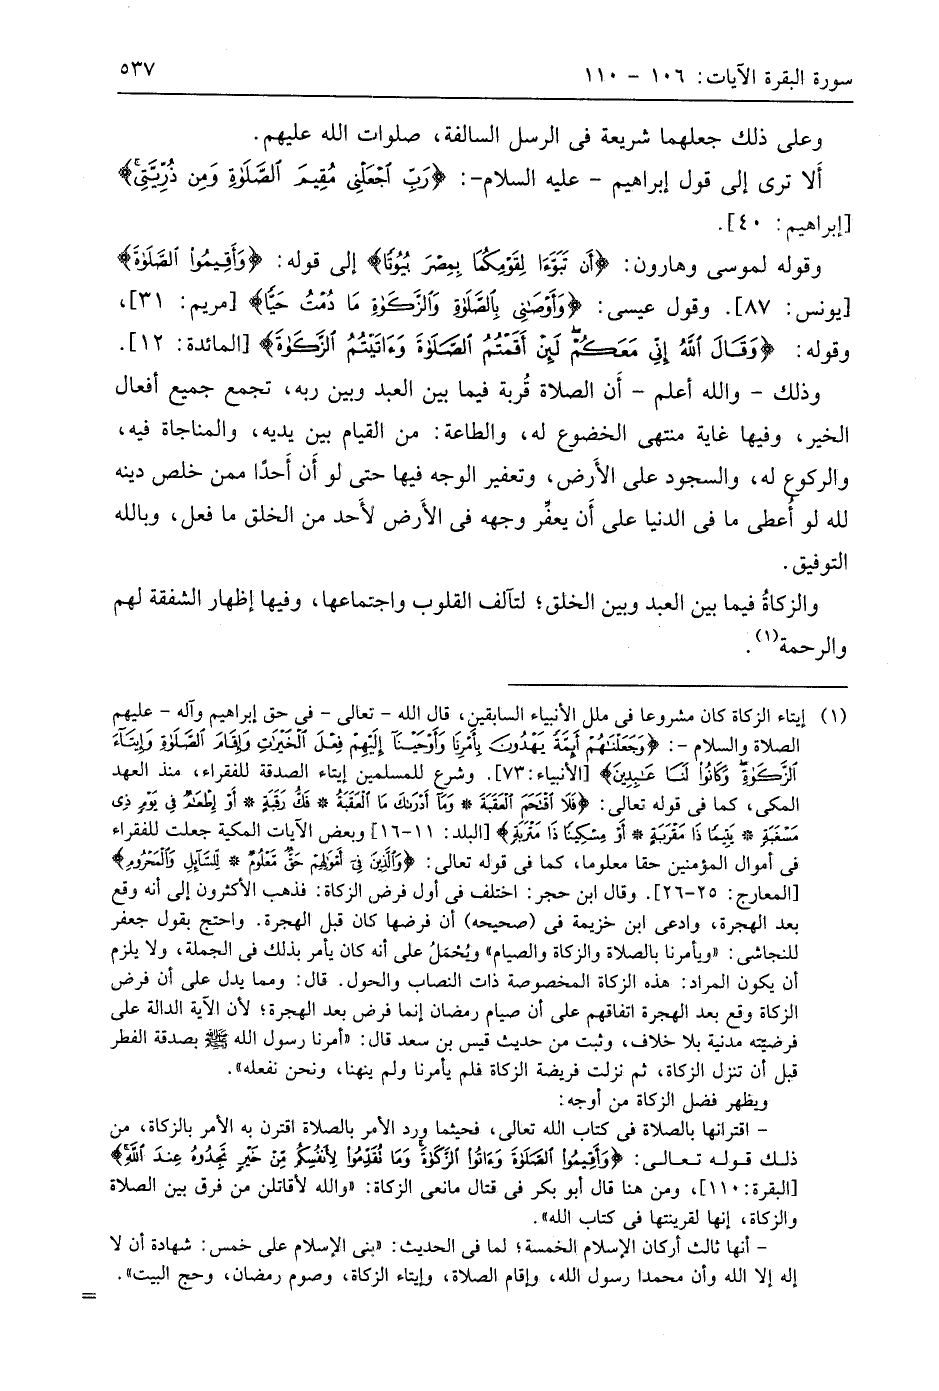 سورة البقرة الآيات: ١٠٦ - ١١٠
٥٣٧
وعلى ذلك جعلهما شريعة فى الرسل السالفة، صلوات الله عليهم.
ألا ترى إلى قول إبراهيم - عليه السلام-: ﴿رَبِّ ٱجْعَلْنِى مُقِيمَ ٱلصَّلَوٰةِ وَمِن ذُرِّيَّتِىۚ﴾
[إبراهيم: ٤٠].
وقوله لموسى وهارون: ﴿أَن تَبَوَّءَا لِقَوْمِكُمَا بِمِصْرَ بُيُوتًا﴾ إلى قوله: ﴿وَأَقِيمُوا۟ ٱلصَّلَوٰةَ﴾
[يونس: ٨٧]. وقول عيسى: ﴿وَأَوْصَٰنِى بِٱلصَّلَوٰةِ وَٱلزَّكَوٰةِ مَا دُمْتُ حَيًّا﴾ [مريم: ٣١]،
وقوله: ﴿وَقَالَ ٱللَّهُ إِنِّى مَعَكُمْۖ لَئِنْ أَقَمْتُمُ ٱلصَّلَوٰةَ وَءَاتَيْتُمُ ٱلزَّكَوٰةَ﴾ [المائدة: ١٢].
وذلك - والله أعلم - أن الصلاة قُربة فيما بين العبد وبين ربه، تجمع جميع أفعال
الخير، وفيها غاية منتهى الخضوع له، والطاعة: من القيام بين يديه، والمناجاة فيه،
والركوع له، والسجود على الأَرض، وتعفير الوجه فيها حتى لو أن أَحدًا ممن خلص دينه
لله لو أُعطى ما فى الدنيا على أن يعفِّر وجهه فى الأَرض لأَحد من الخلق ما فعل، وبالله
التوفيق.
والزكاةُ فيما بين العبد وبين الخلق؛ لتآلف القلوب واجتماعها، وفيها إظهار الشفقة لهم
والرحمة(١).
(١) إيتاء الزكاة كان مشروعا فى ملل الأنبياء السابقين، قال الله - تعالى - فى حق إبراهيم وآله - عليهم
الصلاة والسلام -: ﴿وَجَعَلْنَٰهُمْ أَئِمَّةً يَهْدُونَ بِأَمْرِنَا وَأَوْحَيْنَآ إِلَيْهِمْ فِعْلَ ٱلْخَيْرَٰتِ وَإِقَامَ ٱلصَّلَوٰةِ وَإِيتَآءَ
ٱلزَّكَوٰةِۖ وَكَانُوا۟ لَنَا عَٰبِدِينَ﴾ [الأنبياء:٧٣]. وشرع للمسلمين إيتاء الصدقة للفقراء، منذ العهد
المكى، كما فى قوله تعالى: ﴿فَلَا ٱقْتَحَمَ ٱلْعَقَبَةَ * وَمَآ أَدْرَىٰكَ مَا ٱلْعَقَبَةُ * فَكُّ رَقَبَةٍ * أَوْ إِطْعَٰمٌ فِى يَوْمٍ ذِى
مَسْغَبَةٍ * يَتِيمًا ذَا مَقْرَبَةٍ * أَوْ مِسْكِينًا ذَا مَتْرَبَةٍ﴾ [البلد: ١١-١٦] وبعض الآيات المكية جعلت للفقراء
فى أموال المؤمنين حقا معلوما، كما فى قوله تعالى: ﴿وَٱلَّذِينَ فِىٓ أَمْوَٰلِهِمْ حَقٌّ مَّعْلُومٌ * لِّلسَّآئِلِ وَٱلْمَحْرُومِ﴾
[المعارج: ٢٥-٢٦]. وقال ابن حجر: اختلف فى أول فرض الزكاة: فذهب الأكثرون إلى أنه وقع
بعد الهجرة، وادعى ابن خزيمة فى (صحيحه) أن فرضها كان قبل الهجرة. واحتج بقول جعفر
للنجاشى: «ويأمرنا بالصلاة والزكاة والصيام» ويُحْمَلُ على أنه كان يأمر بذلك فى الجملة، ولا يلزم
أن يكون المراد: هذه الزكاة المخصوصة ذات النصاب والحول. قال: ومما يدل على أن فرض
الزكاة وقع بعد الهجرة اتفاقهم على أن صيام رمضان إنما فرض بعد الهجرة؛ لأن الآية الدالة على
فرضيته مدنية بلا خلاف، وثبت من حديث قيس بن سعد قال: «أمرنا رسول الله ﷺ بصدقة الفطر
قبل أن تنزل الزكاة، ثم نزلت فريضة الزكاة فلم يأمرنا ولم ينهنا، ونحن نفعله».
ويظهر فضل الزكاة من أوجه:
- اقترانها بالصلاة فى كتاب الله تعالى، فحيثما ورد الأمر بالصلاة اقترن به الأمر بالزكاة، من
ذلك قوله تعالى: ﴿وَأَقِيمُوا۟ ٱلصَّلَوٰةَ وَءَاتُوا۟ ٱلزَّكَوٰةَۚ وَمَا تُقَدِّمُوا۟ لِأَنفُسِكُم مِّنْ خَيْرٍ تَجِدُوهُ عِندَ ٱللَّهِۗ﴾
[البقرة:١١٠]، ومن هنا قال أبو بكر فى قتال مانعى الزكاة: «والله لأقاتلن من فرق بين الصلاة
والزكاة، إنها لقرينتها فى كتاب الله».
- أنها ثالث أركان الإسلام الخمسة؛ لما فى الحديث: «بنى الإسلام على خمس: شهادة أن لا
إله إلا الله وأن محمدا رسول الله، وإقام الصلاة، وإيتاء الزكاة، وصوم رمضان، وحج البيت».
=